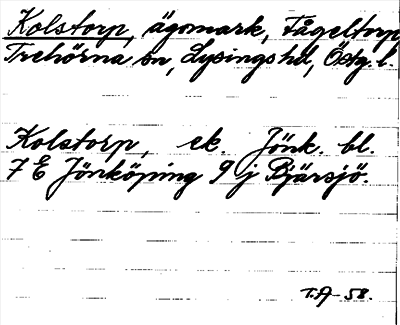 Kolstorp, ägomark, Fågeltorp
Trehörna sn, Lysings hd, Östg. l.
Kolstorp, ek. Jönk. bl.
7 E Jönköping 9 j Bjärsjö.
T.A-58.